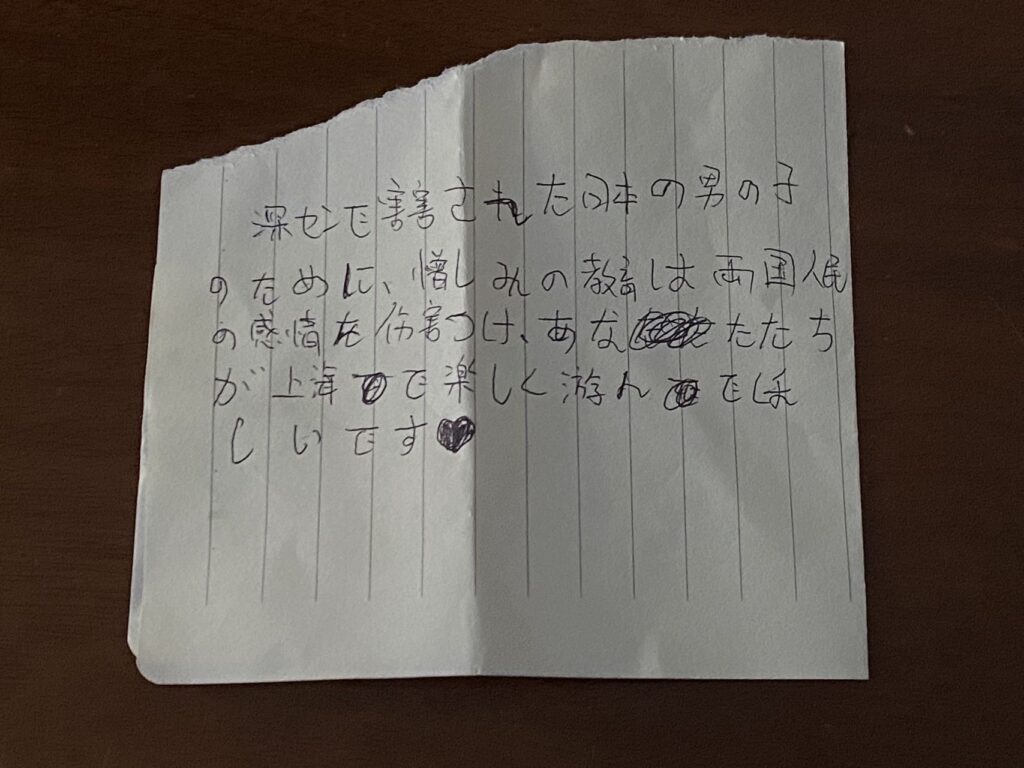 深センで害害された日本の男の子
のために、憎しみの教育は両国人民
の感情を伤害つけ、あなたたち
が上海で楽しく游んでほ
しいです♥